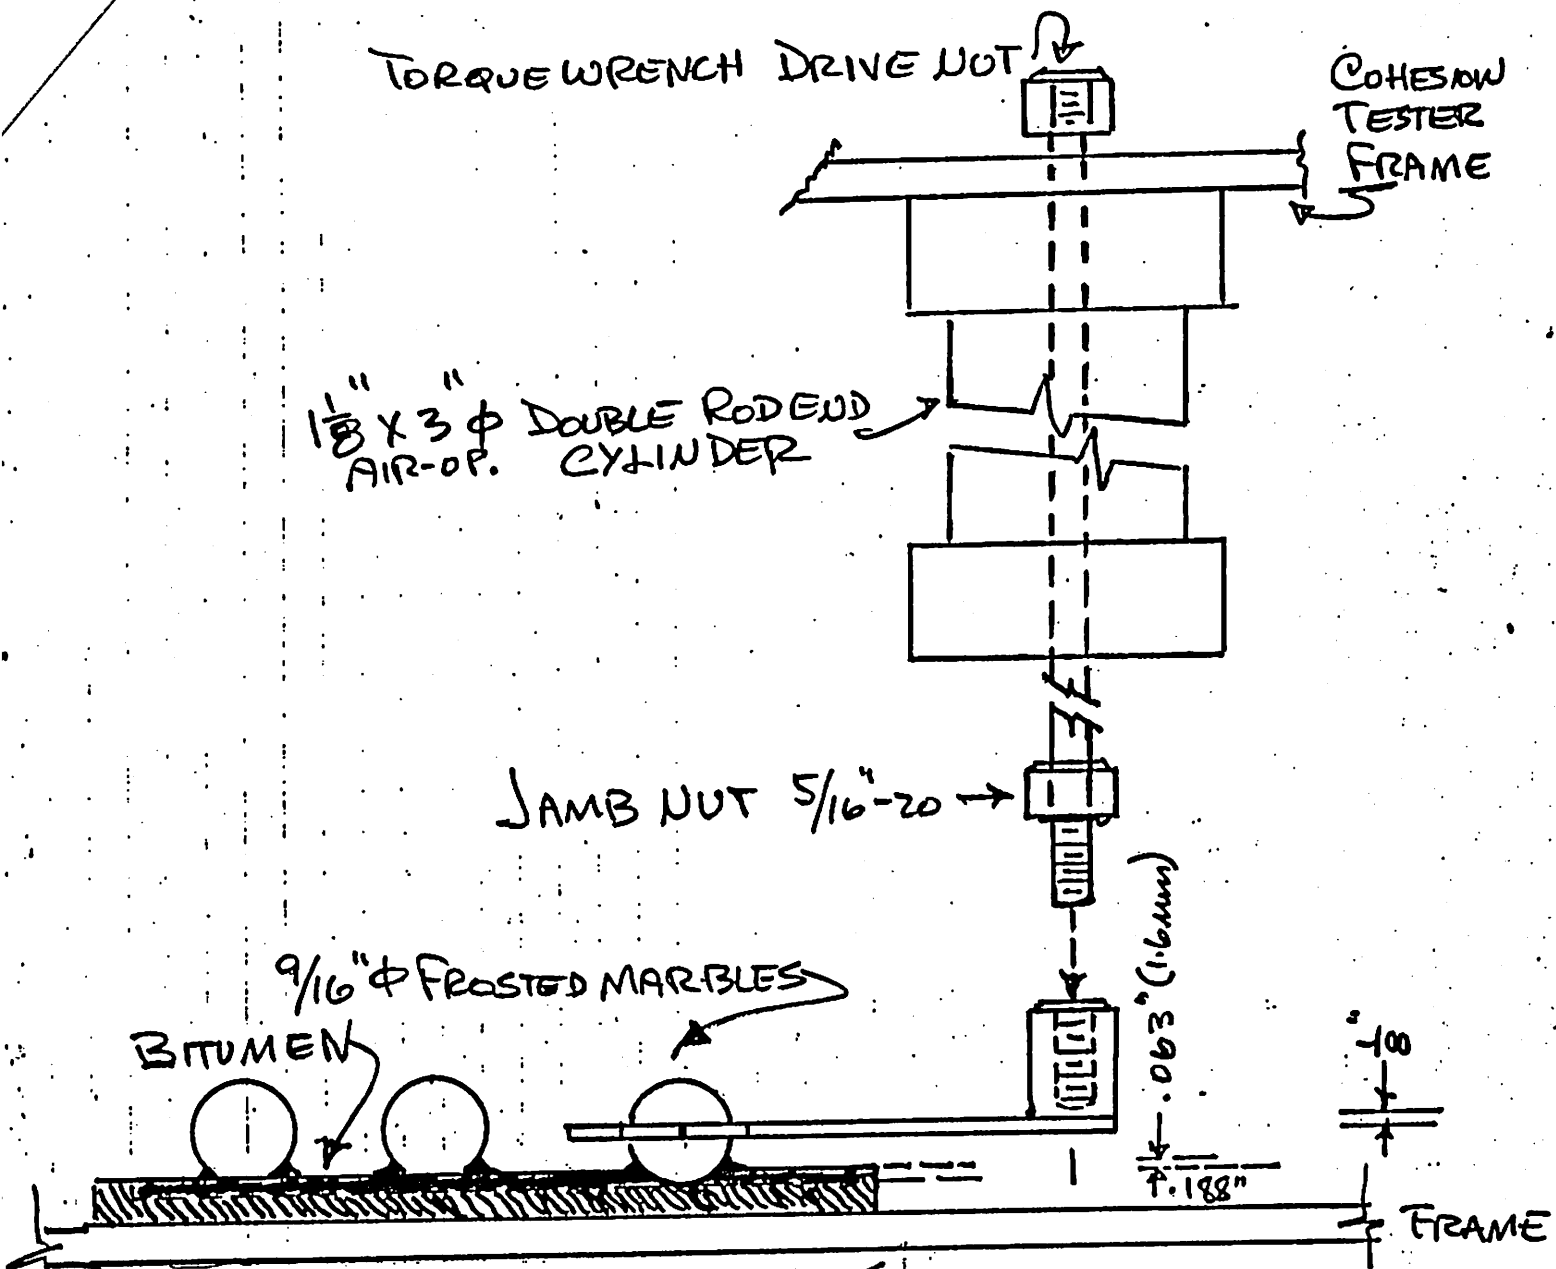 TORQUE WRENCH DRIVE NUT
COHESION
TESTER
FRAME
1 1/8" X 3" φ DOUBLE ROD END
AIR-OP. CYLINDER
JAMB NUT 5/16"-20
.063" (1.6mm)
9/16" φ FROSTED MARBLES
BITUMEN
1/8"
.188"
FRAME